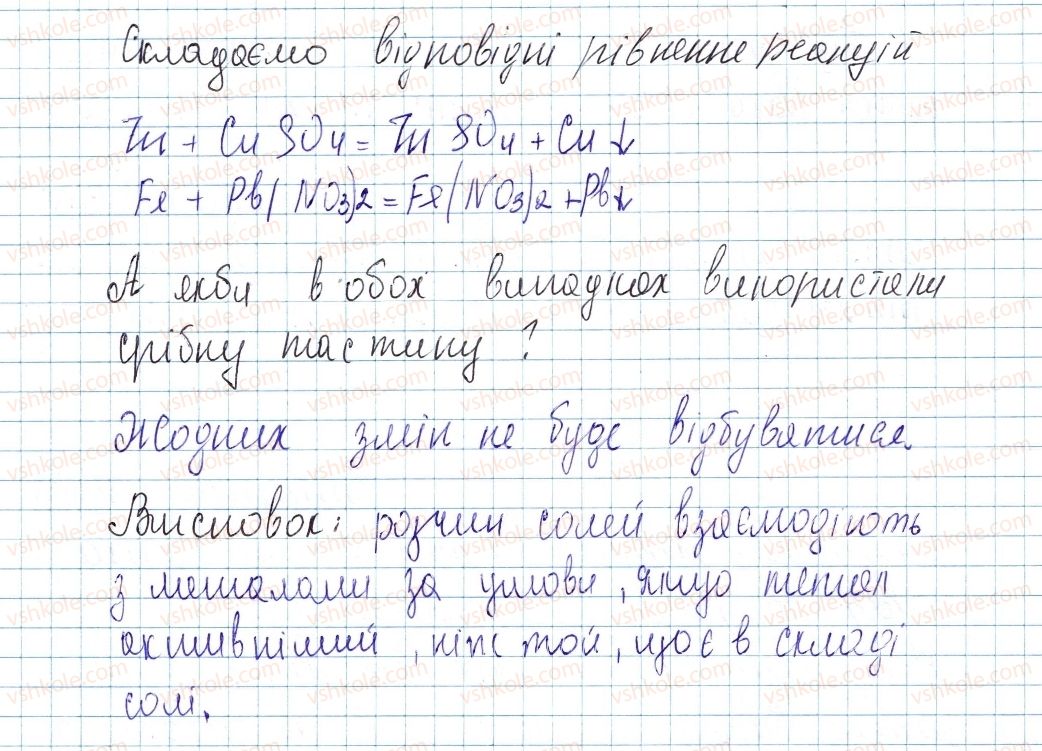 Складаємо відповідні рівненне реакцій
Zn + CuSO4 = ZnSO4 + Cu↓
Fe + Pb(NO3)2 = Fe(NO3)2 + Pb↓
А якби в обох випадках використали
срібну пластину?
Жодних змін не буде відбуватися.
Висновок: розчин солей взаємодіють
з металами за умови, якщо метал
активніший, ніж той, що є в складі
солі.
vshkole.com